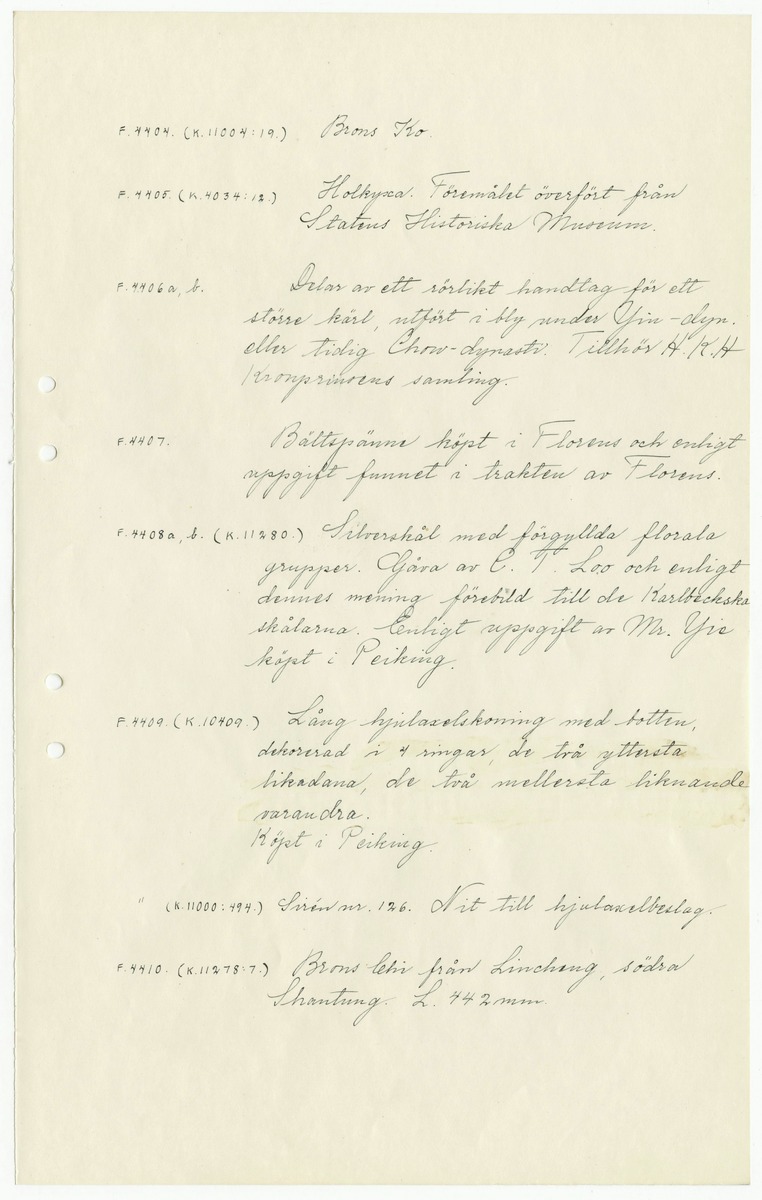 F.4404. (K.11004:19.) Brons Ko.
F.4405. (K.4034:12.) Holkyxa. Föremålet överfört från
Statens Historiska Museum.
F.4406a, b. Delar av ett rörlikt handtag för ett
större kärl, utfört i bly under Yin-dyn.
eller tidig Chow-dynasti. Tillhör H.K.H
Kronprinsens samling.
F.4407. Bältspänne köpt i Florens och enligt
uppgift funnet i trakten av Florens.
F.4408a, b. (K.11280.) Silverskål med förgyllda florala
grupper. Gåva av C. T. Loo och enligt
dennes mening förebild till de Karlbeckska
skålarna. Enligt uppgift av Mr. Yie
köpt i Peiking.
F.4409. (K.10409.) Lång hjulaxelskoning med botten,
dekorerad i 4 ringar, de två yttersta
likadana, de två mellersta liknande
varandra.
Köpt i Peiking.
" (K.11000:494.) Sirén nr. 126. Nit till hjulaxelbeslag.
F.4410. (K.11278:7.) Brons Chi från Lincheng, södra
Shantung. L. 442 mm.